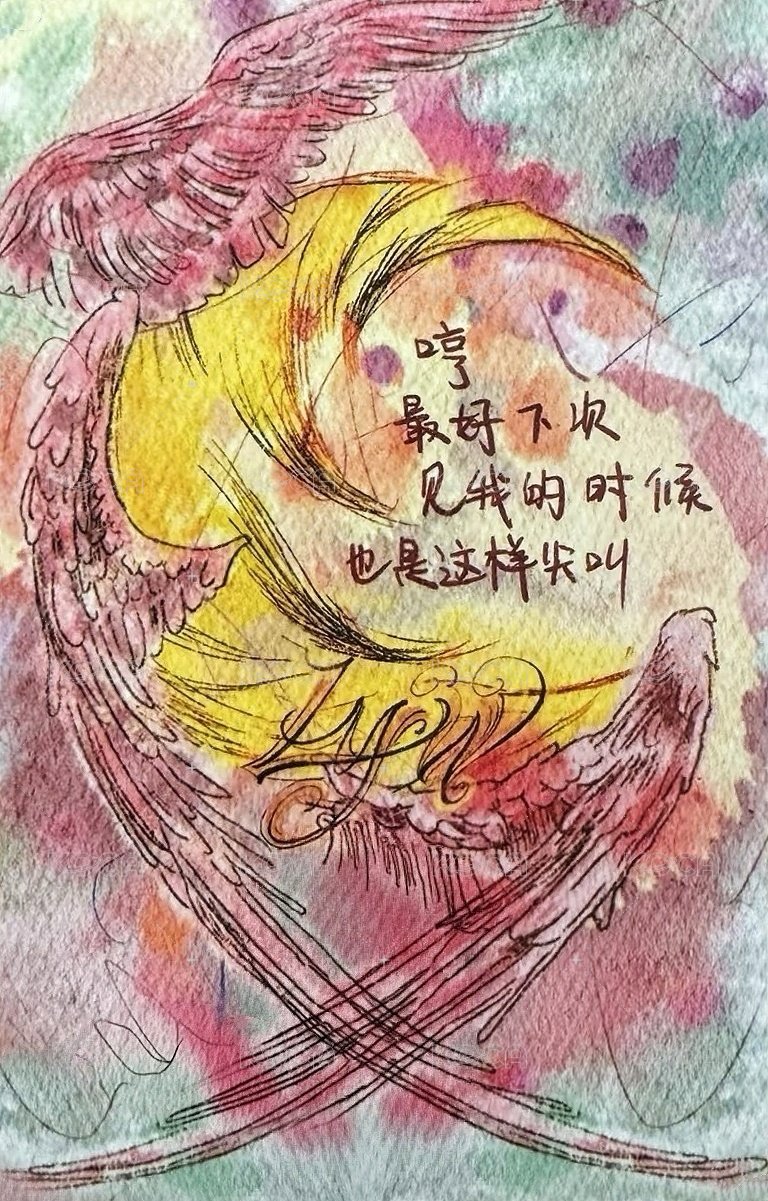 哼
最好下次
见我的时候
也是这样尖叫
LYW